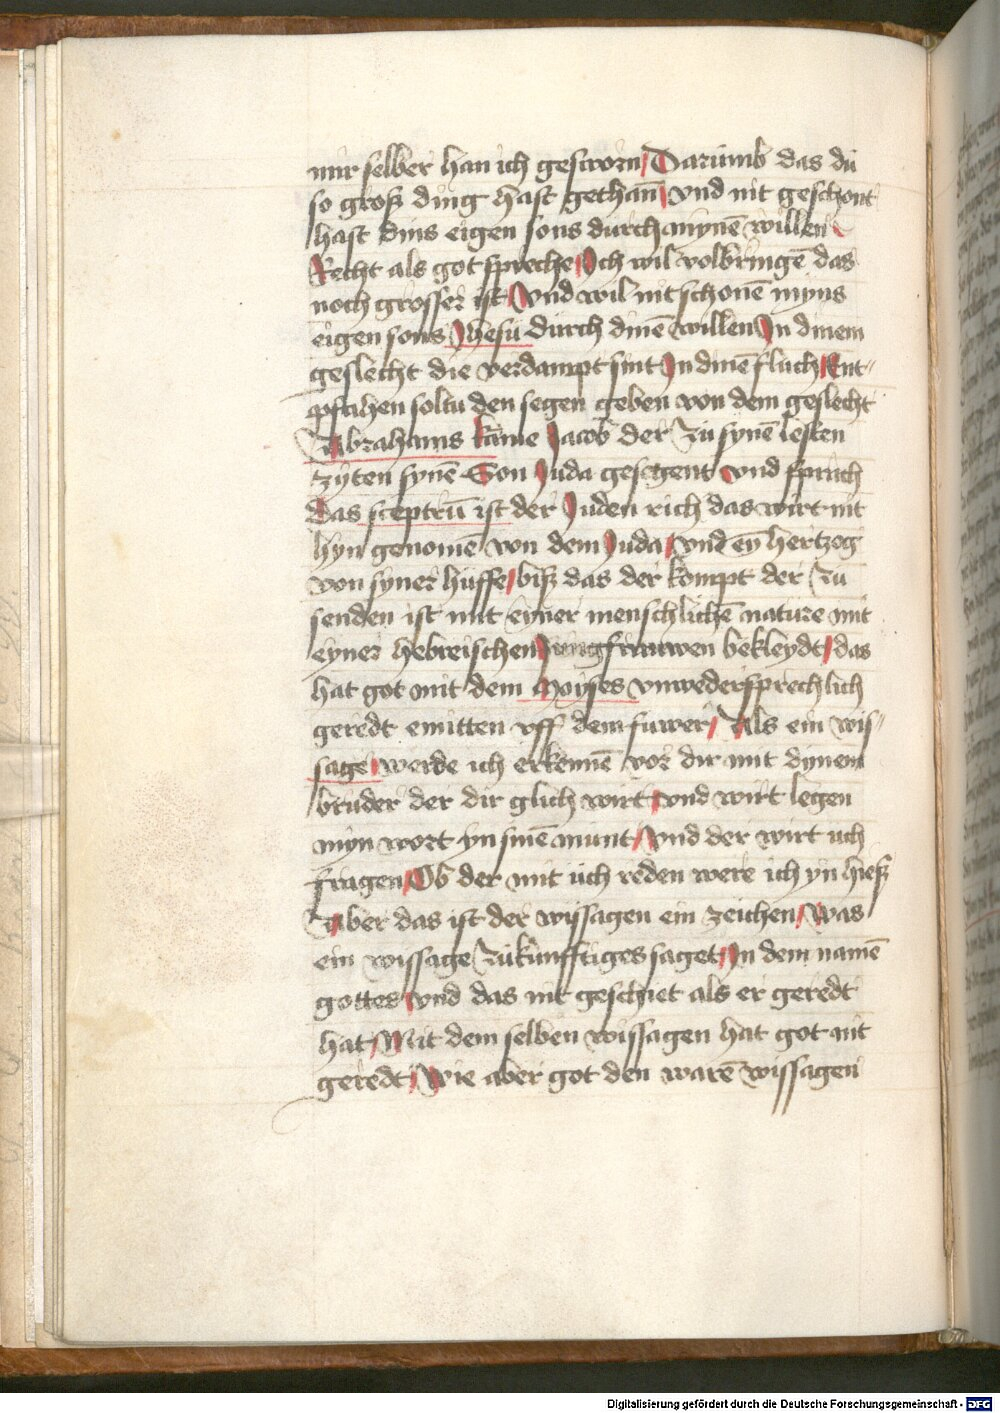 mir selber han ich gesworn / Darumb das du
so groß ding hast gethan / vnd nit geschont
hast dins eigen sons durch mynē willen
Recht als got spreche / Ich wil volbringē das
noch grosser ist / Vnd wil nit schonē myns
eigen sons Jhesu durch dinē willen In dinem
geslecht die verdampt sint In dinē fluch / Ent-
pfahen soltu den segen geben von dem geslecht
Abrahams kāme Jacob der zu synē lesten
zyten synē Son Juda gesegent vnd sprach
Das sceptrū ist der Juden rich das wirt nit
hyn genomē von dem Juda / vnd eȳ hertzog
von syner huffe / biß das der kompt der zu
senden ist mit eyner menschlichē nature mit
eyner hebreischen Jungfrauwen bekleydt / das
hat got mit dem Moyses vnwedersprechlich
geredt emitten vff dem fuwer / Als ein wis-
sage / werde ich erkennē vor dir mit dynem
bruder der dir glich wirt / vnd wirt legen
myn wort yn sinē munt / Vnd der wirt uch
fragen / Ob der mit üch reden were ich yn hieß
Aber das ist der wissagen ein zeichen / Was
ein wissage zukunfftiges saget / In dem namē
gottes / vnd das nit geschiet als er geredt
hat / Mit dem selben wissagen hat got nit
geredt / Wie aber got den warē wissagen
Digitalisierung gefördert durch die Deutsche Forschungsgemeinschaft - DFG